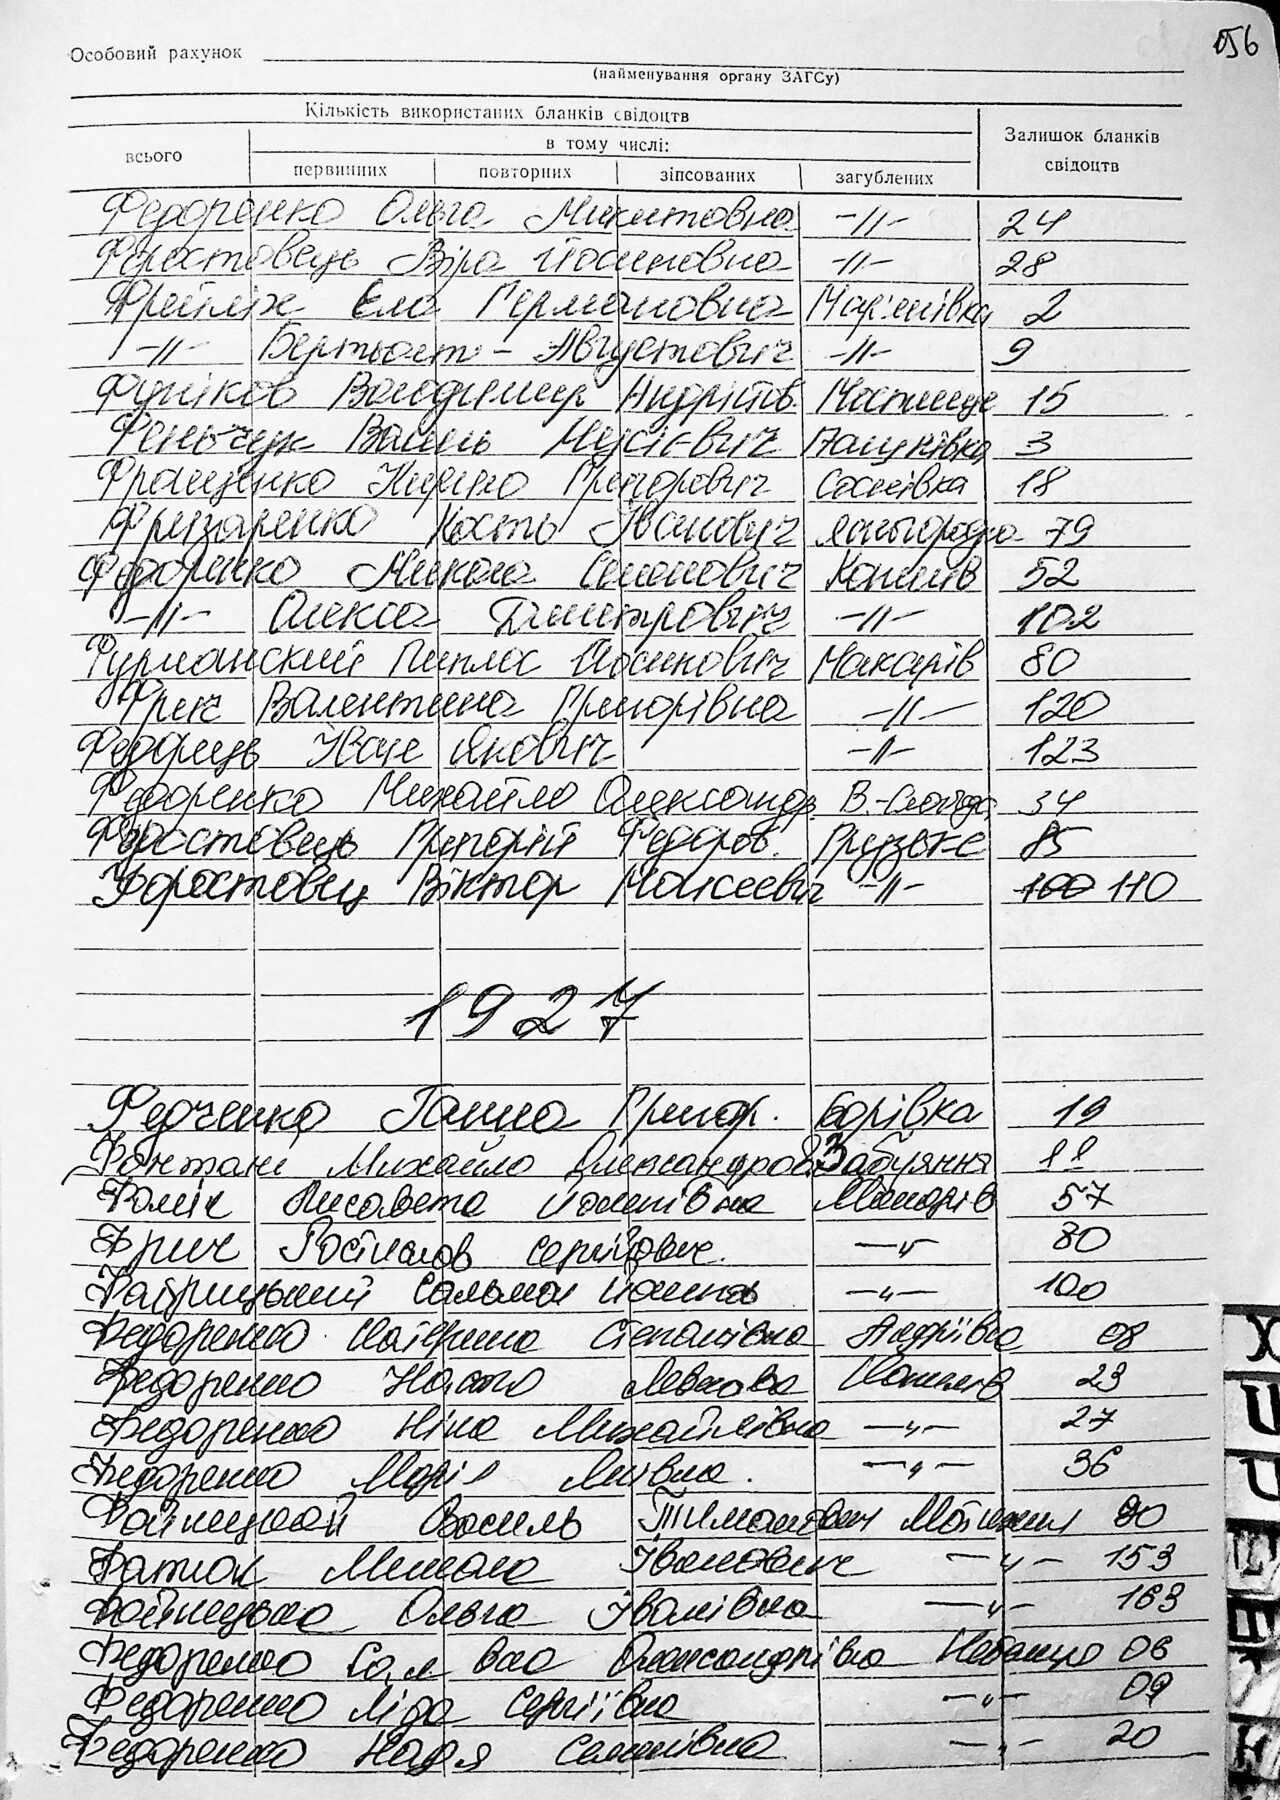 056
Особовий рахунок
(найменування органу ЗАГСу)
Кількість використаних бланків свідоцтв
Залишок бланків свідоцтв
всього
в тому числі:
первинних повторних зіпсованих загублених
Федоренко Ольга Микитовна -//- 24
Форостовець Віра Йосиповна -//- 28
Фрейліх Ела Германовна Мар'янівка 2
-//- Бертольт - Августович -//- 9
Фуніков Володимир Андрієв. 15
Феньчук Василь Мусієвич 3
Фращенко Григорович Соснівка 18
Кость Іванович Ясногородка 79
Федоренко Микола Семенович Копилів 52
-//- Олекса Дмитрович -//- 102
Фурманский Пилип Йосипович Макарів 80
Фрич Валентина Григорівна -//- 120
Федорець Іван Якович -//- 123
Федоренко Михайло Олександр В.-Слобода 34
Форостовець Григорій Федоров. Грузьке 85
Форостовец Віктор Моисеевич -//- 100 110
1927
Федченко Ганна Григор. Борівка 19
Фонтані Михайло Олександров. Забуяння 11
Лисавета Йосипівна Макарів 57
Фрич Ростислав Сергійович. -"- 80
Фабрицький -"- 100
Федоренко Катерина Степанівна Андріївка 08
Федоренко Настя Левкова Копилів 23
Федоренко Ніна Михайлівна -"- 27
Федоренко Марія . -"- 36
Файницкий Василь Тимошович Мотижин 90
Фатюк Микола Іванович -"- 153
Файницька Ольга Іванівна -"- 163
Федоренко Олександрівна Небелиця 06
Федоренко Ліда Сергіївна -"- 09
Федоренко Надя Семенівна -"- 20